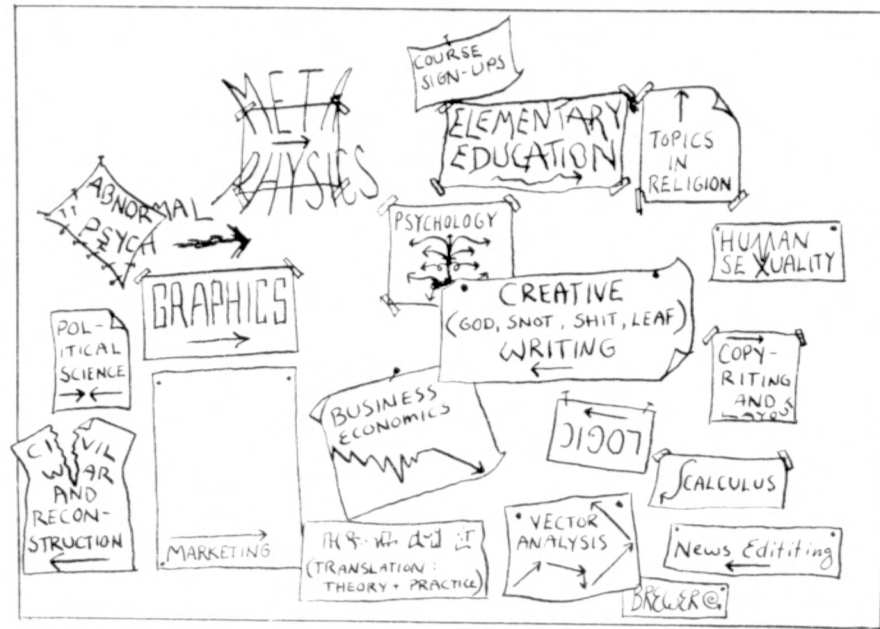 COURSE
SIGN-UPS
META
PHYSICS
ELEMENTARY
EDUCATION
TOPICS
IN
RELIGION
ABNORMAL
PSYCH
PSYCHOLOGY
HUMAN
SEXUALITY
GRAPHICS
CREATIVE
(GOD, SNOT, SHIT, LEAF)
WRITING
POL-
ITICAL
SCIENCE
COPY-
RITING
AND
BUSINESS
ECONOMICS
LOGIC
CIVIL
WAR
AND
RECON-
STRUCTION
CALCULUS
MARKETING
(TRANSLATION:
THEORY + PRACTICE)
VECTOR
ANALYSIS
News Edititing
BREWER